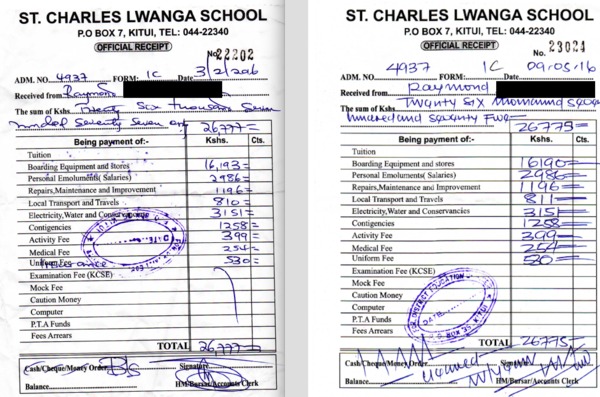 ST. CHARLES LWANGA SCHOOL
P.O BOX 7, KITUI, TEL: 044-22340
OFFICIAL RECEIPT
No. 22202
ADM. NO. 4937 FORM: 1C Date 3/2/2016
Received from Raymond
The sum of Kshs. Twenty Six thousand Seven
hundred Seventy Seven only 26,777=
Being payment of:- Kshs. Cts.
Tuition
Boarding Equipment and Stores 16,193=
Personal Emoluments( Salaries) 2986=
Repairs,Maintenance and Improvement 1196=
Local Transport and Travels 810=
Electricity,Water and Conservancies 3151=
Contigencies 1258=
Activity Fee 399=
Medical Fee 254=
Uniform Fee 530=
Examination Fee (KCSE)
Mock Fee
Caution Money
Computer
P.T.A Funds
Fees Arrears
TOTAL 26,777=
Cash/Cheque/Money Order Signature
Balance HM/Bursar/Accounts Clerk
ST. CHARLES LWANGA SCHOOL
P.O BOX 7, KITUI, TEL: 044-22340
OFFICIAL RECEIPT
No. 23024
ADM. NO. 4937 FORM: 1C Date 09/05/16
Received from Raymond
The sum of Kshs. Twenty Six thousand seven
hundred and seventy Five 26775=
Being payment of:- Kshs. Cts.
Tuition
Boarding Equipment and stores 16190=
Personal Emoluments( Salaries) 2986=
Repairs,Maintenance and Improvement 1196=
Local Transport and Travels 811=
Electricity,Water and Conservancies 3151
Contigencies 1258=
Activity Fee 399=
Medical Fee 254=
Uniform Fee 530=
Examination Fee (KCSE)
Mock Fee
Caution Money
Computer
P.T.A Funds
Fees Arrears
DISTRICT EDUCATION
DATE
KITUI
TOTAL 26775=
Cash/Cheque/Money Order Signature
Balance HM/Bursar/Accounts Clerk